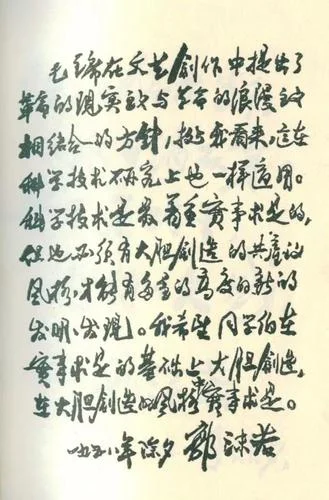 毛主席在文艺创作中提出了
革命的现实主义与革命的浪漫主义
相结合的方针,据我看来,这在
科学技术研究上也一样适用。
科学技术是着重實事求是的,
但也必须有大胆创造的共产主义
风格,才能有多量的高度的新的
发明、发现。我希望同学们在
實事求是的基础上大胆创造,
在大胆创造的风格中實事求是。
一九五八年除夕 郭沫若